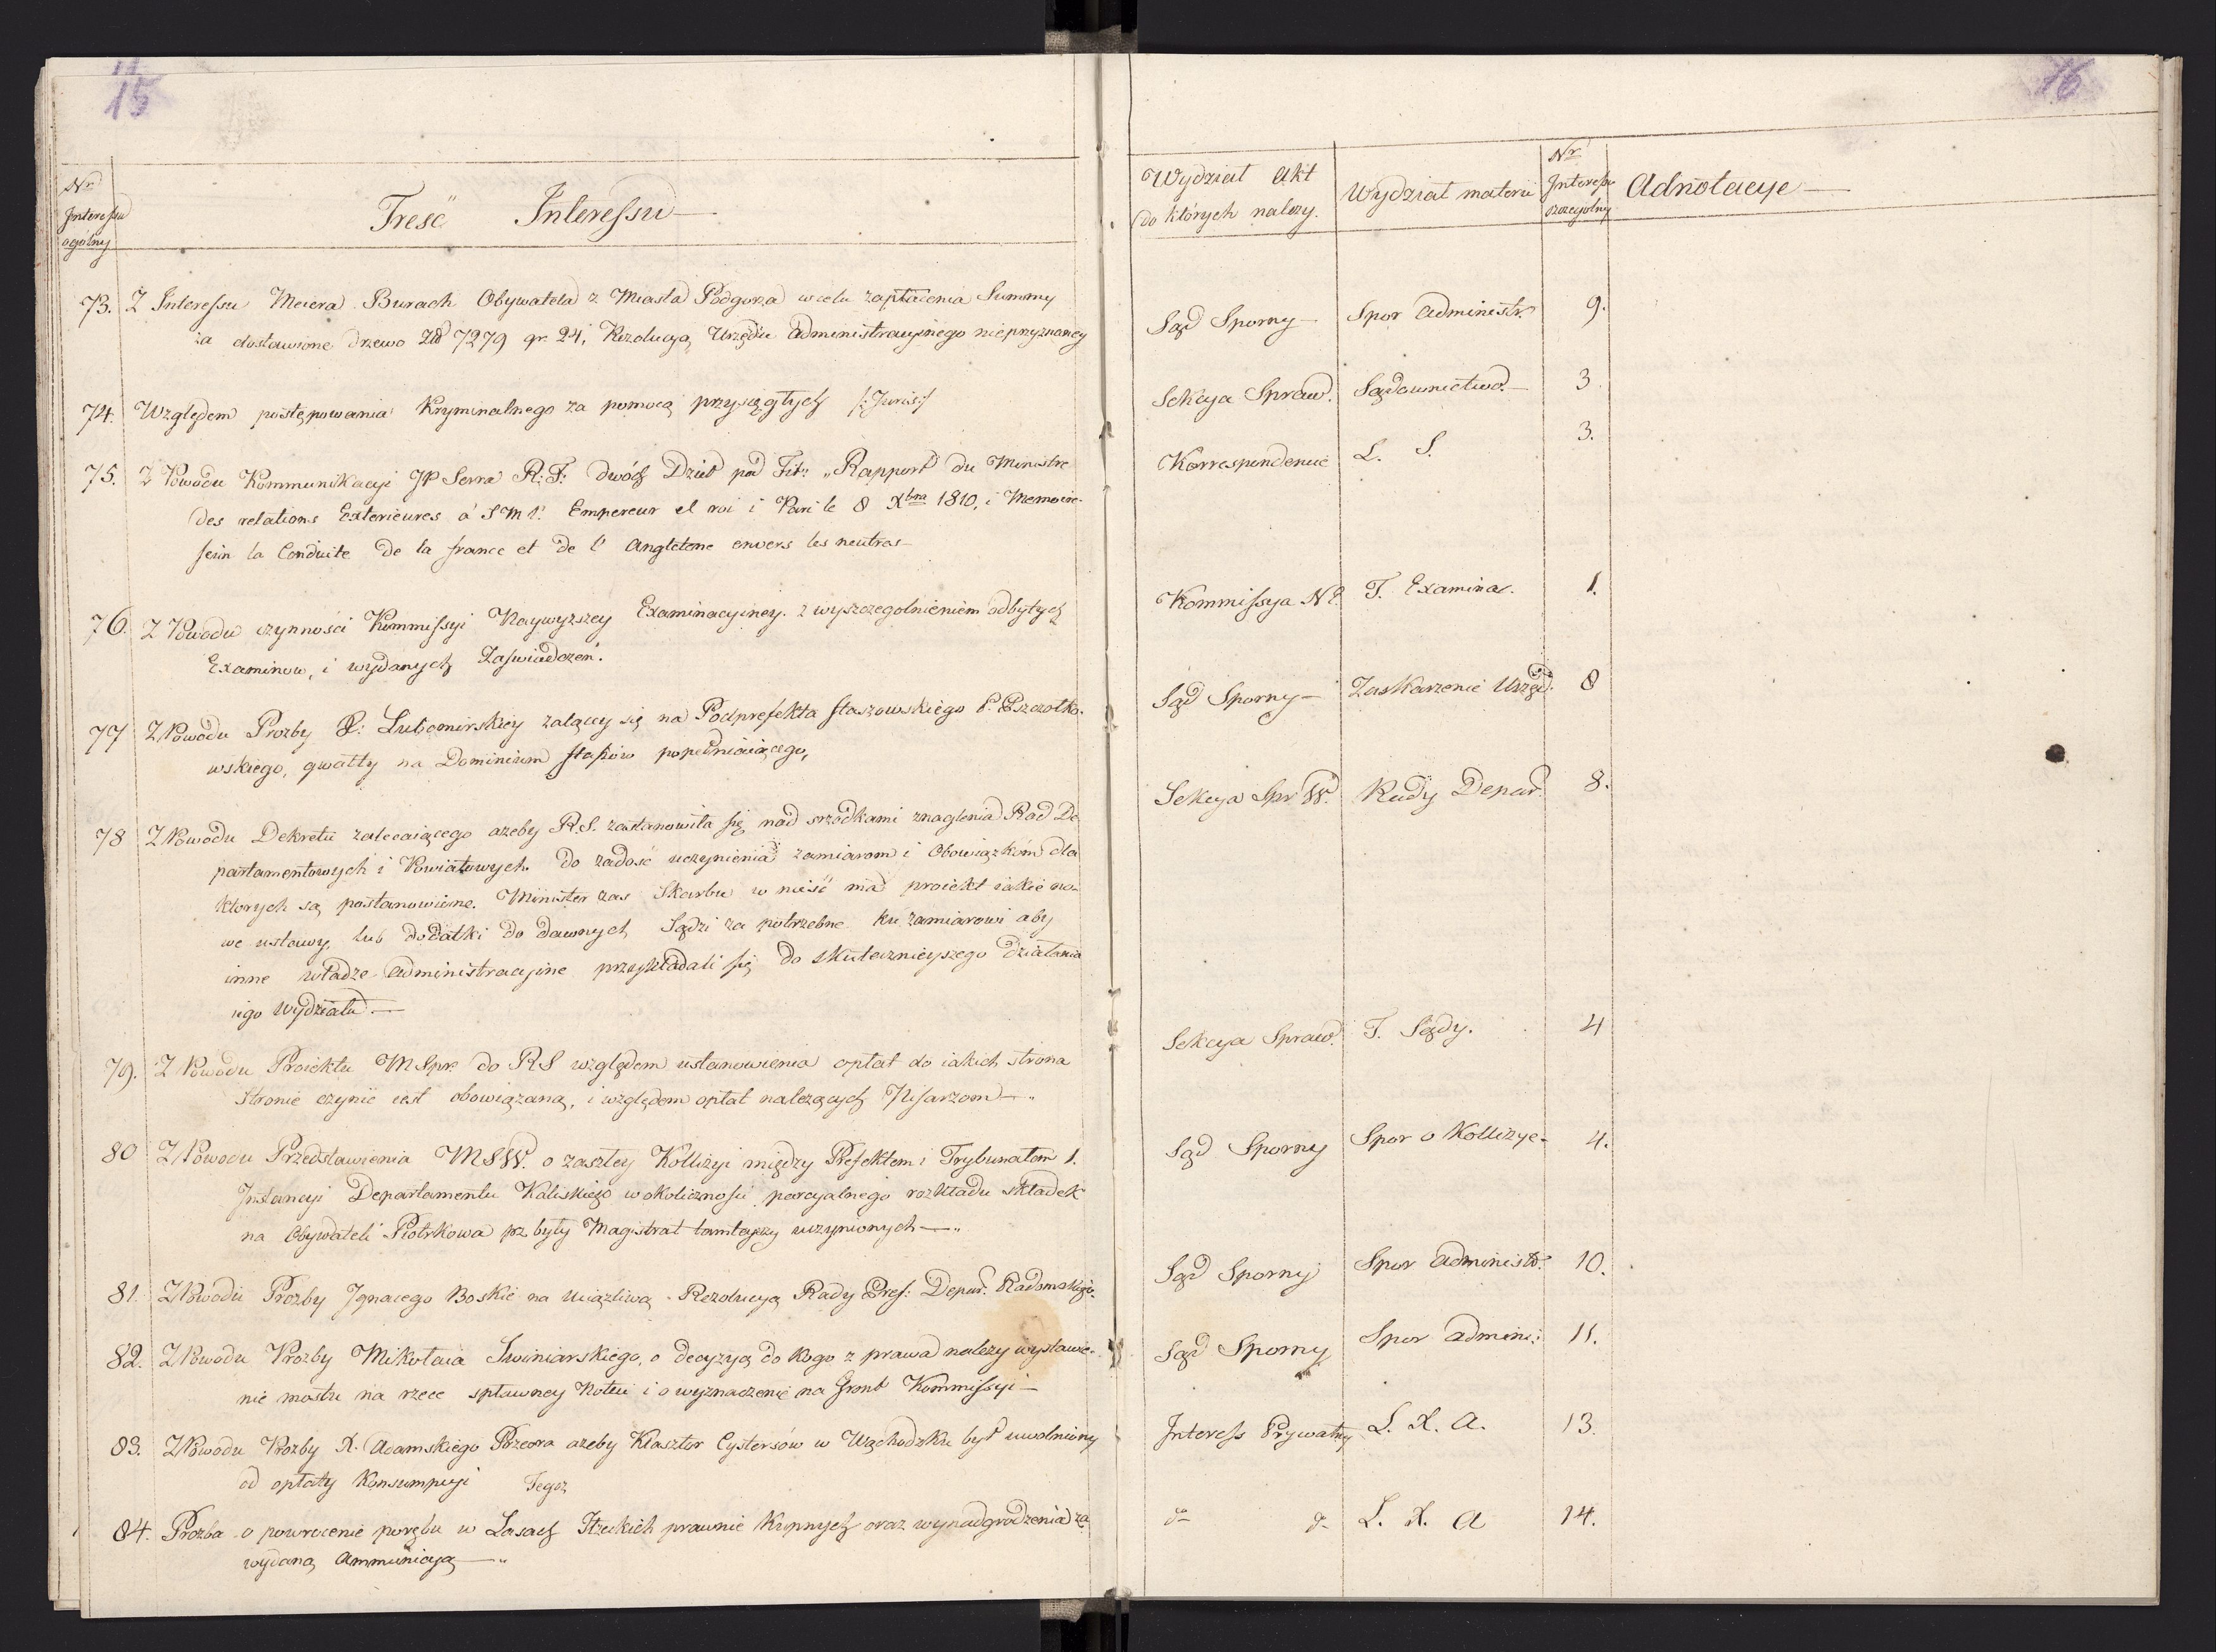 11
15
Nr
Interessu
ogólny
Treść Interessu
73. Z Interessu Meiera Burach Obywatela z Miasta Podgorza w celu zapłacenia Summy
za dostawione drzewo Zł 7279 gr. 24, Rezolucyą Urzędu Administracyinego nieprzyznaney
74. Względem postępowania Kryminalnego za pomocą przysięgłych /:Juris:/
75. Z Powodu Kommunikacyi JP Serra R: F: dwóch Dzieł pod Tit: „Rapport du Ministre
des relations Exterieures á S M l'. Empereur et roi i Pari le 8 Xbra 1810, i Memoire
sur la Conduite de la france et de l' Angleterre envers les neutres
76. Z Powodu czynności Kommissyi Naywyższey Examinacyiney. z wyszczegolnieniem odbytych
Examinow, i wydanych Zaswiadczeń.
77 Z Powodu Prozby X: Lubomirskiey żalącey się na Podprefekta staszowskiego P. Pszczołko-
wskiego, gwałty na Dominium Staszów popełniaiącego,
78 Z Powodu Dekretu zalecaiącego ażeby R.S. zastanowiła się nad srzodkami znaglenia Rad De
partamentowych i Powiatowych. do zadosć uczynienia zamiarom i Obowiązkóm dla
ktorych są postanowione. Minister zas Skarbu w nieść ma proiekt iakie no-
we ustawy, lub dodatki do dawnych Sądzi za potrzebne ku zamiarowi aby
inne władze Administracyine przykładali się do skutecznieyszego działania
iego Wydziału —
79. Z Powodu Proiektu M Spr. do R S względem ustanowienia opłat do iakich strona
stronie czynić iest obowiązaną, i względem opłat należących Pisarzom —„
80 Z Powodu Przedstawienia M S W. o zaszłey Kollizyi między Prefektem i Trybunałem 1.
Instancyi Departamentu Kaliskiego w okoliczności parcyalnego rozkładu składek
na Obywateli Piotrkowa prz. były Magistrat tamtejszy uczynionych —„
81. Z Powodu Prozby Ignacego Boskie na uciążliwą Rezolucyą Rady Pref: Depar. Radomskigo.
82. Z Powodu Prozby Mikołaia Swiniarskiego, o decyzyą do kogo z prawa należy wystawie-
nie mostu na rzece spławney Noteci i o wyznaczenie na Gront Kommissyi —
83. Z Powodu Prozby X. Adamskiego Przeora ażeby Klasztor Cystersów w Wąchodzku był uwolniony
od opłaty Konsumpcyi Tegoz
84. Prozba o powrócenie porębu w Lasach Iłzeckich prawnie Kupnych oraz wynadgrodzenia za
wydaną Ammunicyą —„
16
Wydział Akt
do których należy.
Wydział materii
Nr
Interessu
szczegolny
Adnotacye —
Sąd Sporny — Spor Administr. 9.
Sekcya Spraw. Sądownictwo. — 3
Korrespondencie L. S. 3.
Kommissya N. T. Examina. 1.
Sąd Sporny — Zaskarzenie Urzęd. 8
Sekcya Spr W. Rady Depar. 8.
Sekcya Spraw. T. Sądy. 4
Sąd Sporny Spor o Kollizye - 4.
Sąd Sporny Spor Administr. 10.
Sąd Sporny Spor admini: 11.
Interess Prywatny L. X. A. 13.
do do L. X. A 14.